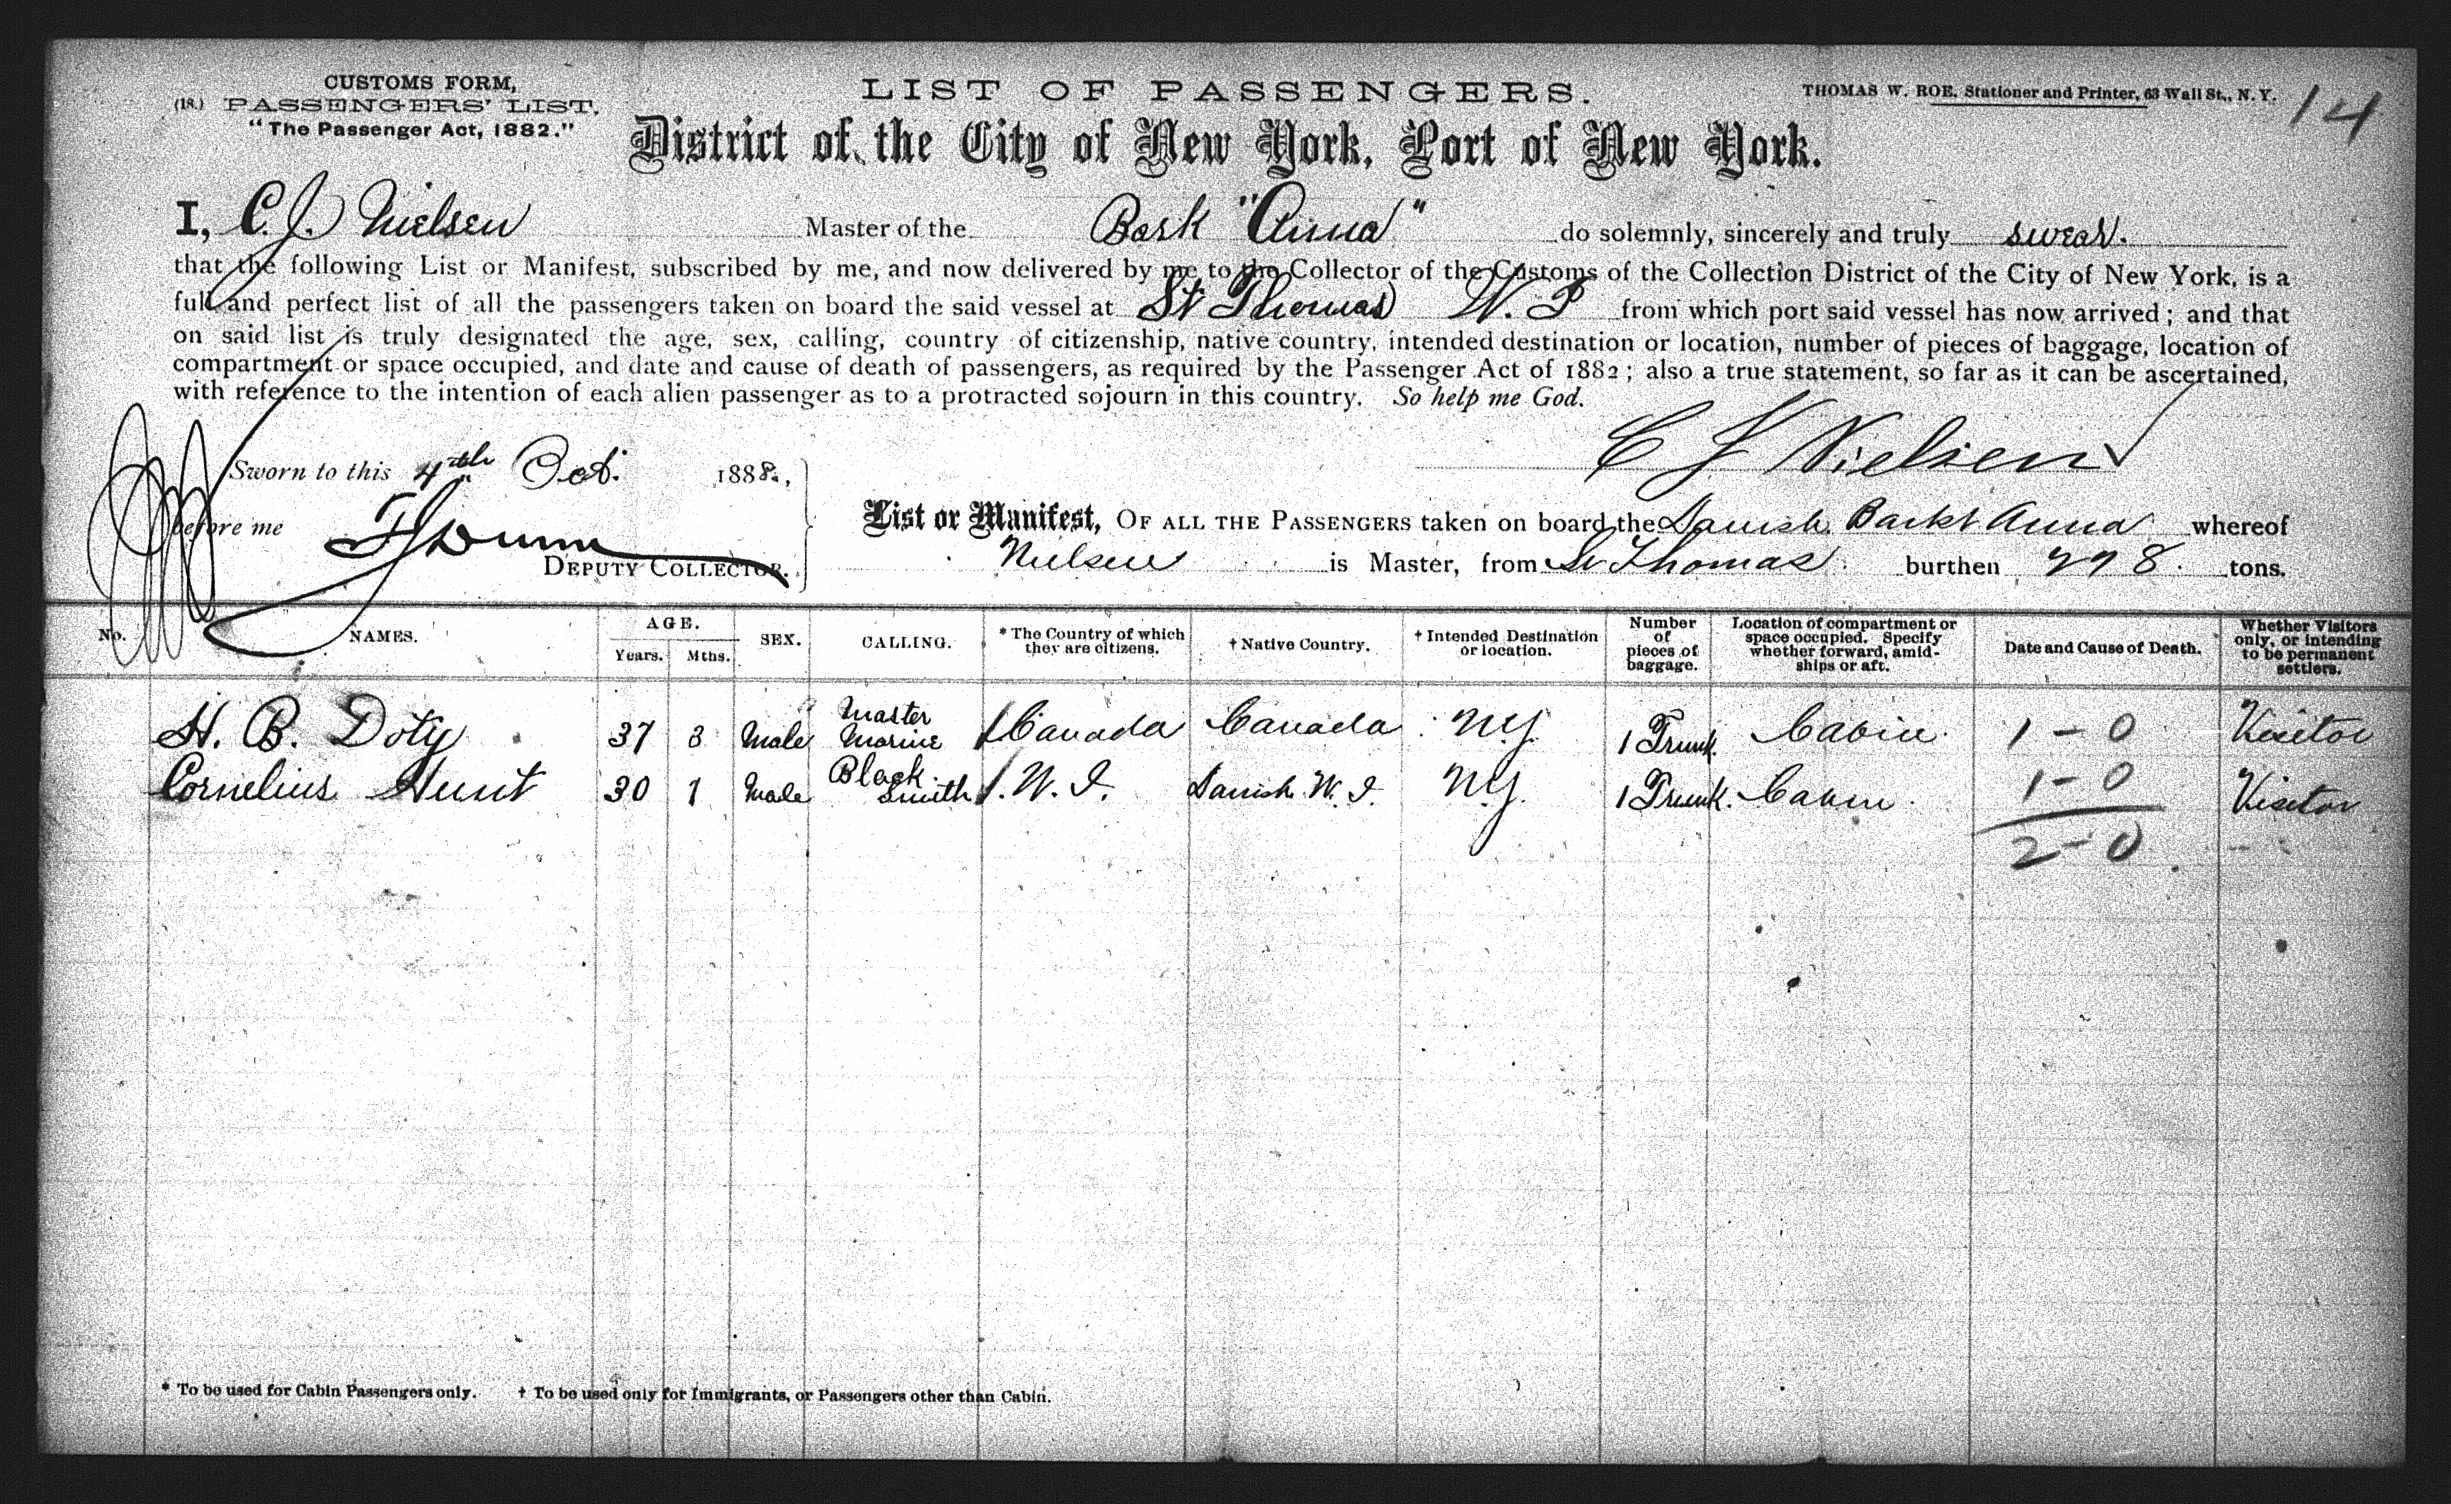 CUSTOMS FORM,
(18.) PASSENGERS' LIST.
"The Passenger Act, 1882."
LIST OF PASSENGERS.
THOMAS W. ROE, Stationer and Printer, 63 Wall St., N. Y.
14
District of the City of New York, Port of New York.
I, C. J. Nielsen Master of the Bark "Anna" do solemnly, sincerely and truly swear.
that the following List or Manifest, subscribed by me, and now delivered by me to the Collector of the Customs of the Collection District of the City of New York, is a
full and perfect list of all the passengers taken on board the said vessel at St Thomas W. I from which port said vessel has now arrived; and that
on said list is truly designated the age, sex, calling, country of citizenship, native country, intended destination or location, number of pieces of baggage, location of
compartment or space occupied, and date and cause of death of passengers, as required by the Passenger Act of 1882; also a true statement, so far as it can be ascertained,
with reference to the intention of each alien passenger as to a protracted sojourn in this country. So help me God.
C J Nielsen
Sworn to this 4th Oct. 1888.,
before me
DEPUTY COLLECTOR.
List or Manifest, OF ALL THE PASSENGERS taken on board the Danish Barkt Anna whereof
Nielsen is Master, from St Thomas burthen 298 tons.
No. NAMES. AGE. Years. Mths. SEX. CALLING. * The Country of which they are citizens. † Native Country. † Intended Destination or location. Number of pieces of baggage. Location of compartment or space occupied. Specify whether forward, amidships or aft. Date and Cause of Death. Whether Visitors only, or intending to be permanent settlers.
H. B. Doty 37 3 Male Master Marine Canada Canada N.Y. 1 Trunk. Cabin. 1-0 Visitor
Cornelius Hunt 30 1 Male Black Smith W. I. Danish W. I. N.Y. 1 Trunk. Cabin. 1-0 Visitor
2-0
* To be used for Cabin Passengers only. † To be used only for Immigrants, or Passengers other than Cabin.